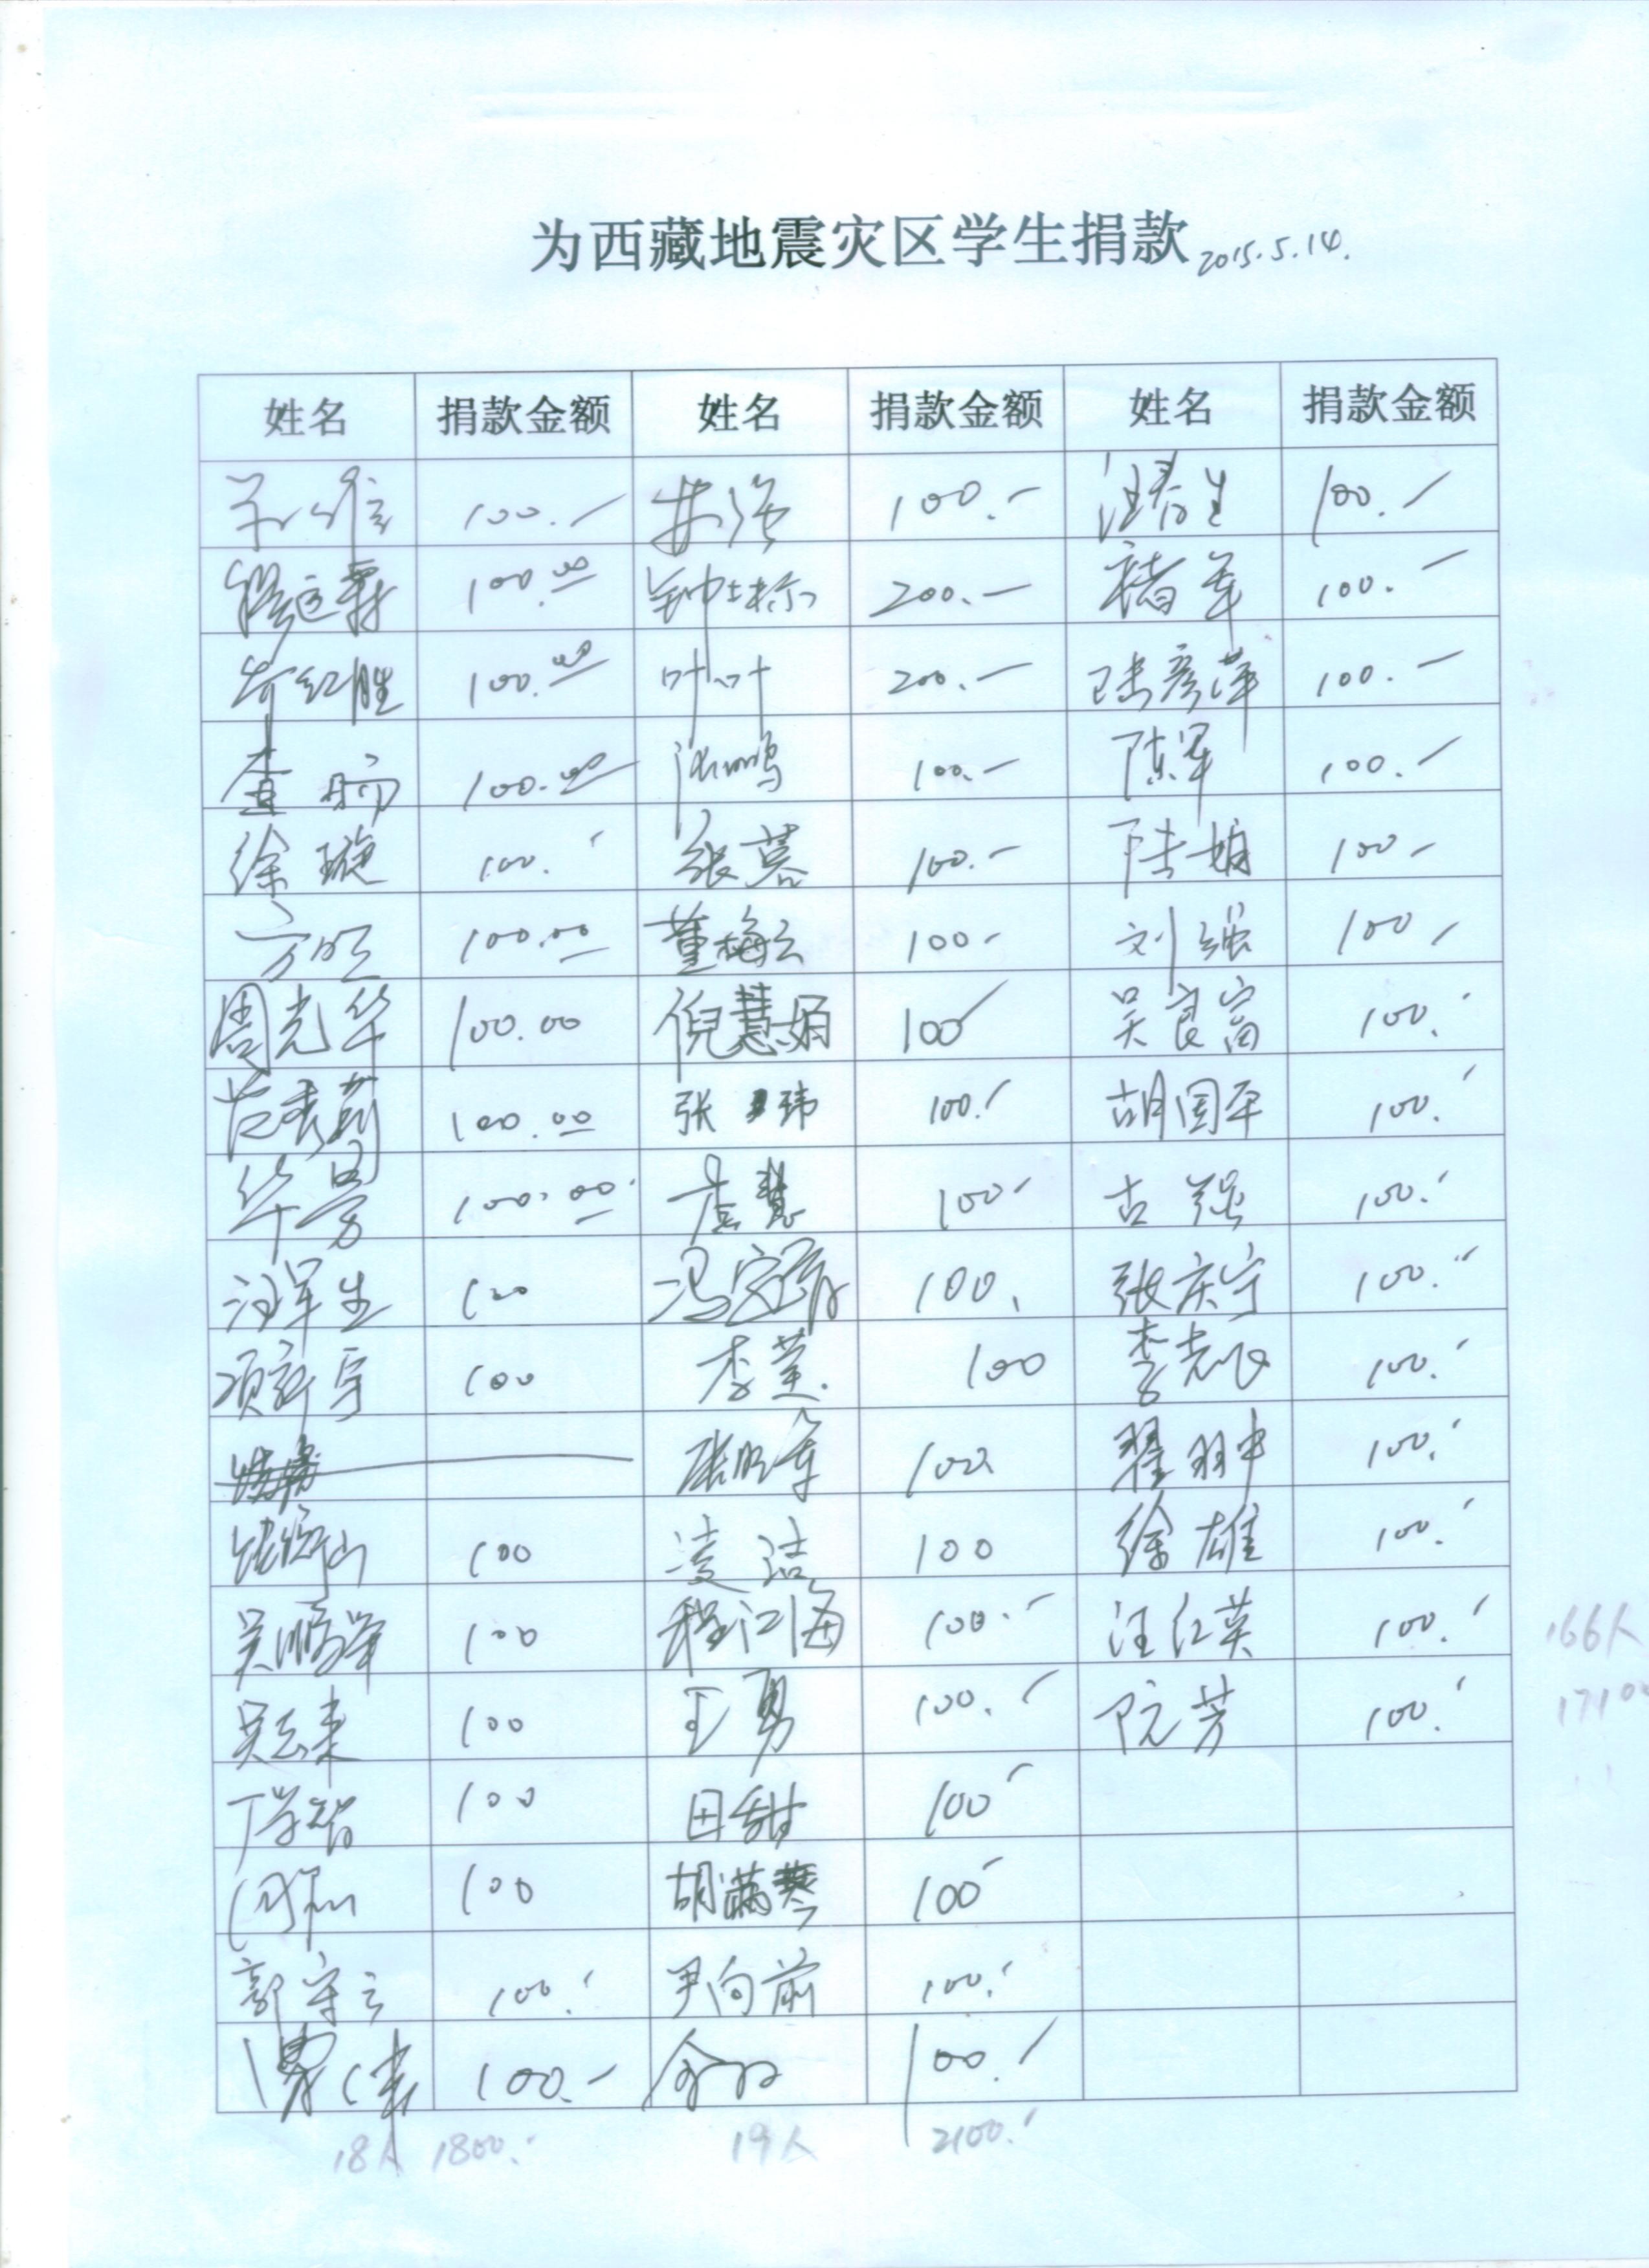 为西藏地震灾区学生捐款 2015.5.14.
姓名 捐款金额 姓名 捐款金额 姓名 捐款金额
100.- 100.- 汪春生 100.-
100.00 200.- 褚军 100.-
100.00 叶叶 200.- 陆彦萍 100.-
查炳 100.00 100.- 陈军 100.-
徐璇 100.- 张慕 100.- 陆娟 100-
方旺 100.00 董梅云 100- 刘强 100-
周光华 100.00 倪慧娟 100 吴良富 100.-
100.00 张玮 100.- 胡国平 100.-
华男 100.00 詹慧 100- 古强 100.-
汪军生 100 100. 张庆宁 100.-
项新宇 100 李莹. 100 李志 100.-
张明军 100 翟羽中 100.-
100 凌洁 100 徐雄 100.-
吴顺军 100 程江海 100.- 汪红英 100.-
100 王勇 100.- 阮芳 100.-
丁学智 100 田甜 100-
100 胡满琴 100-
郭守云 100.- 尹向前 100.-
100.- 100.-
18人 1800.- 19人 2100.-
166人